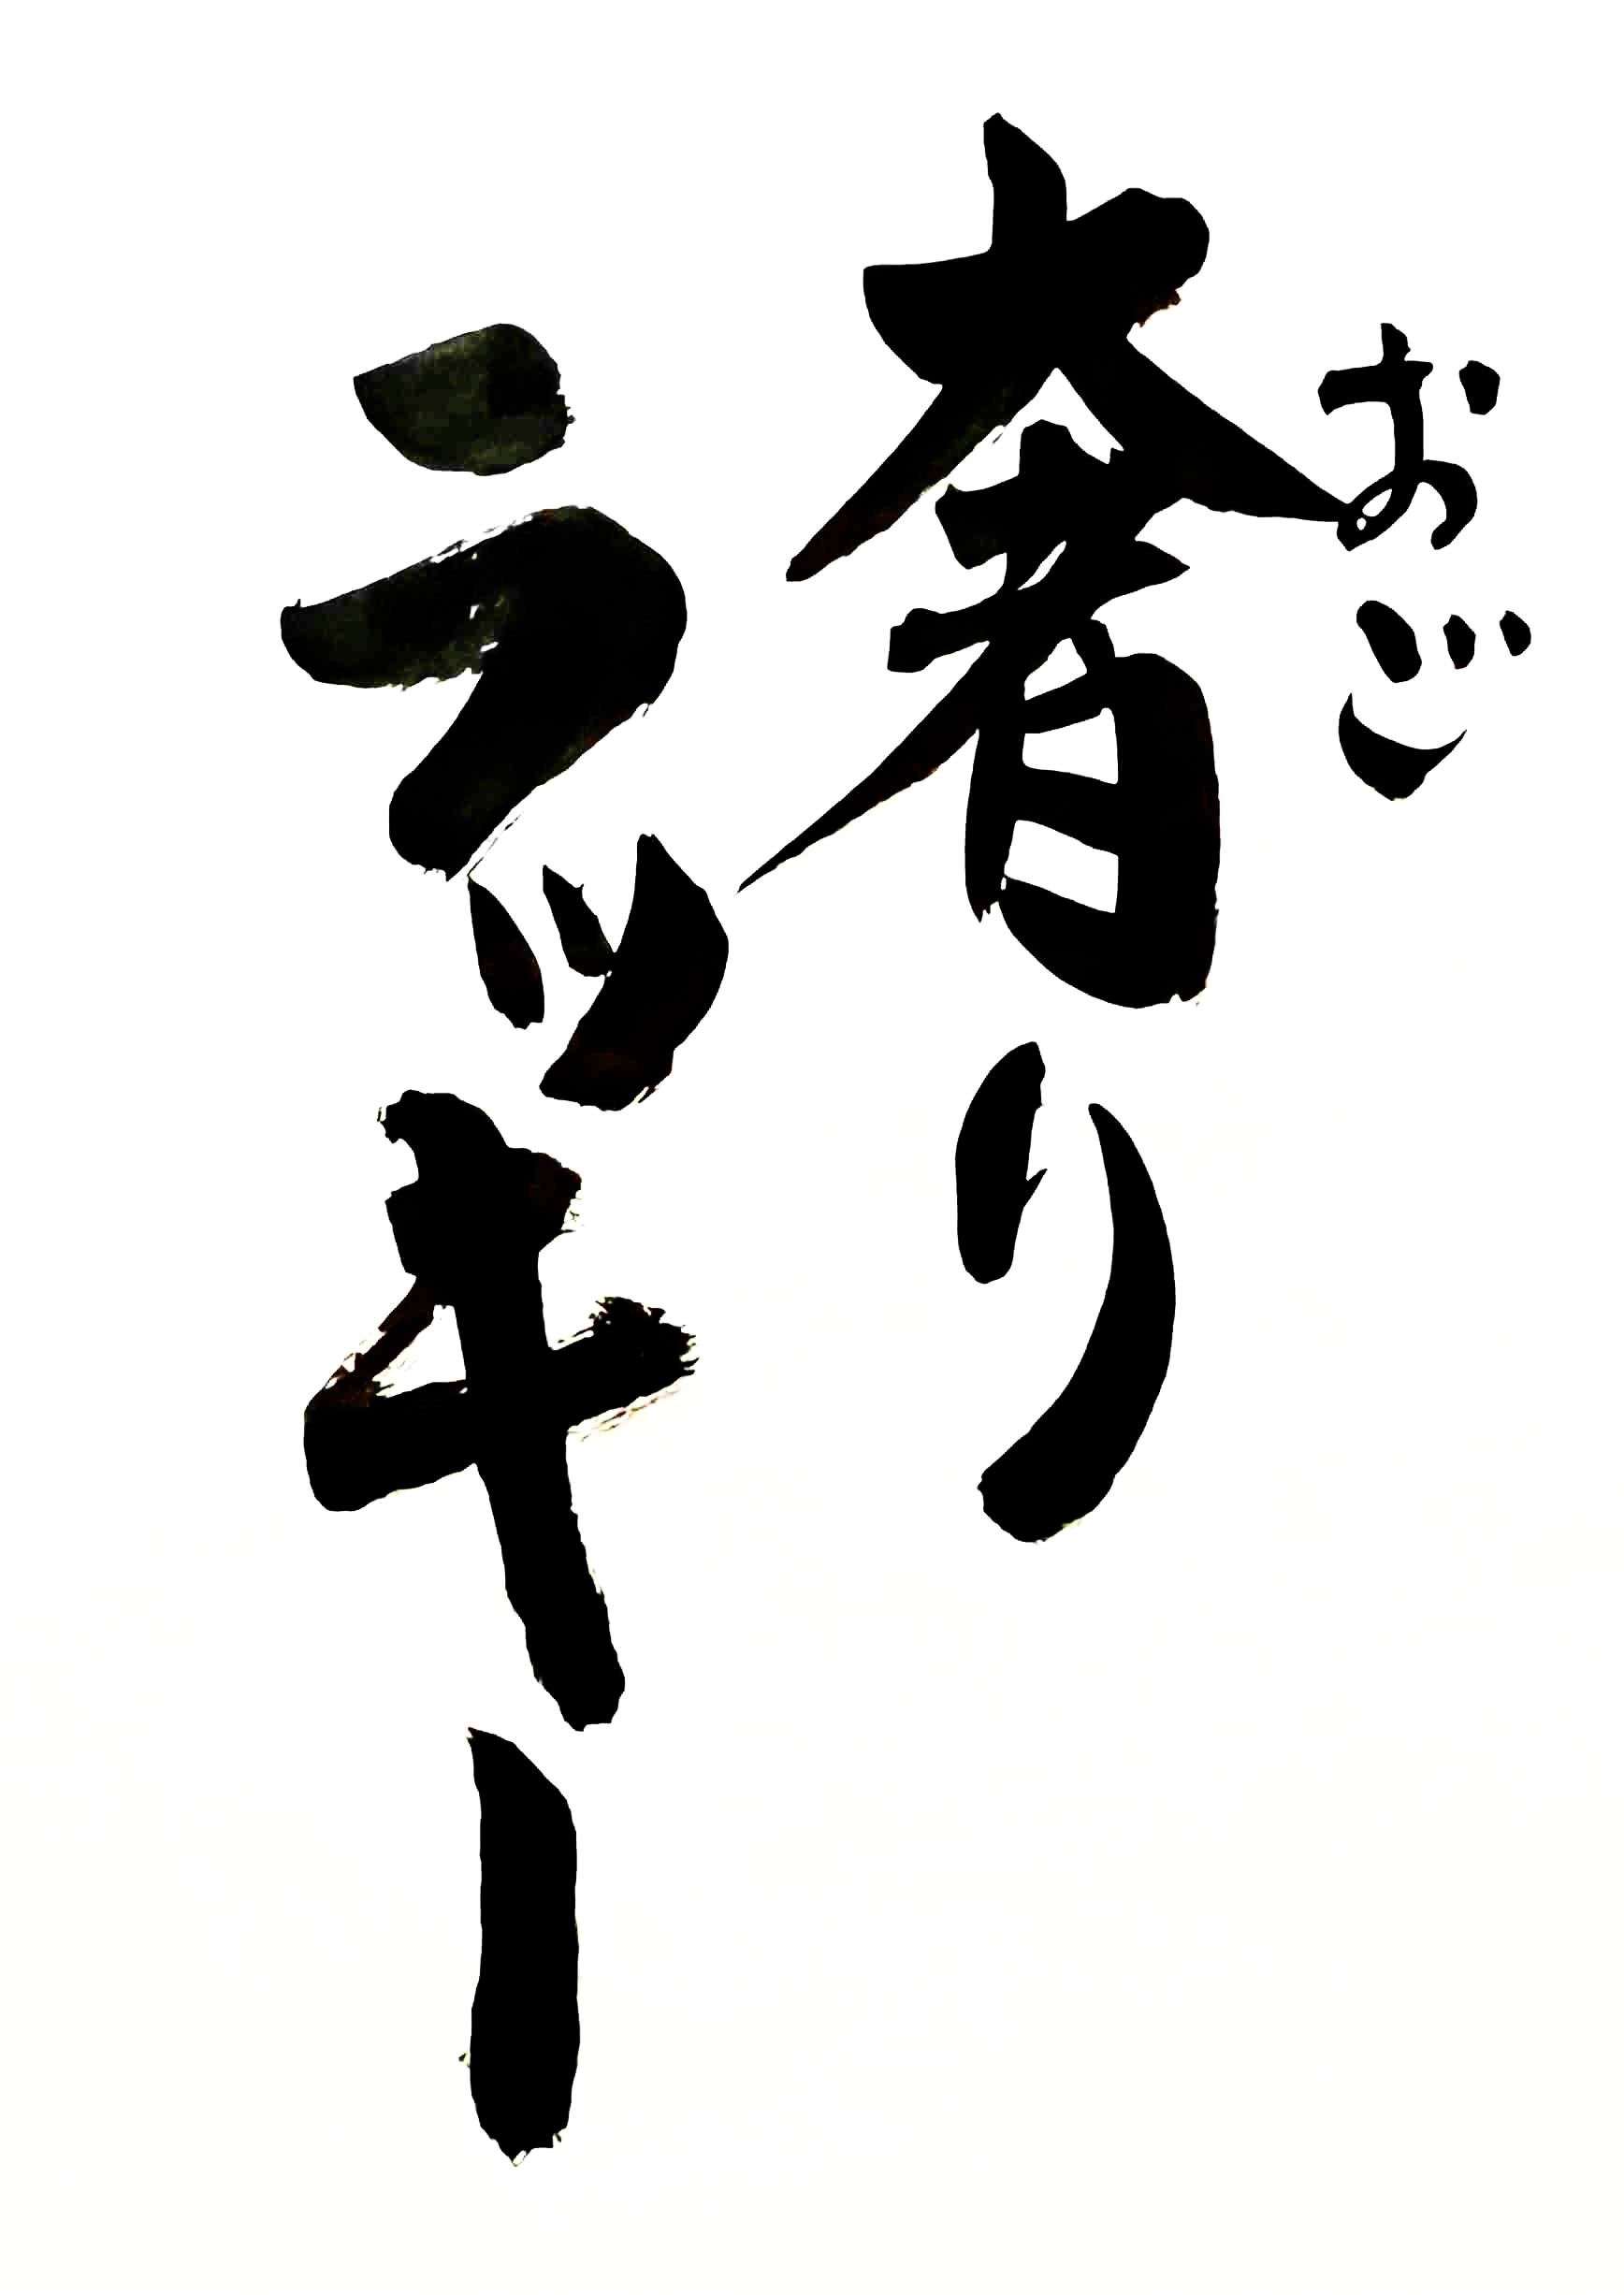 おご
奢り
ラッキー